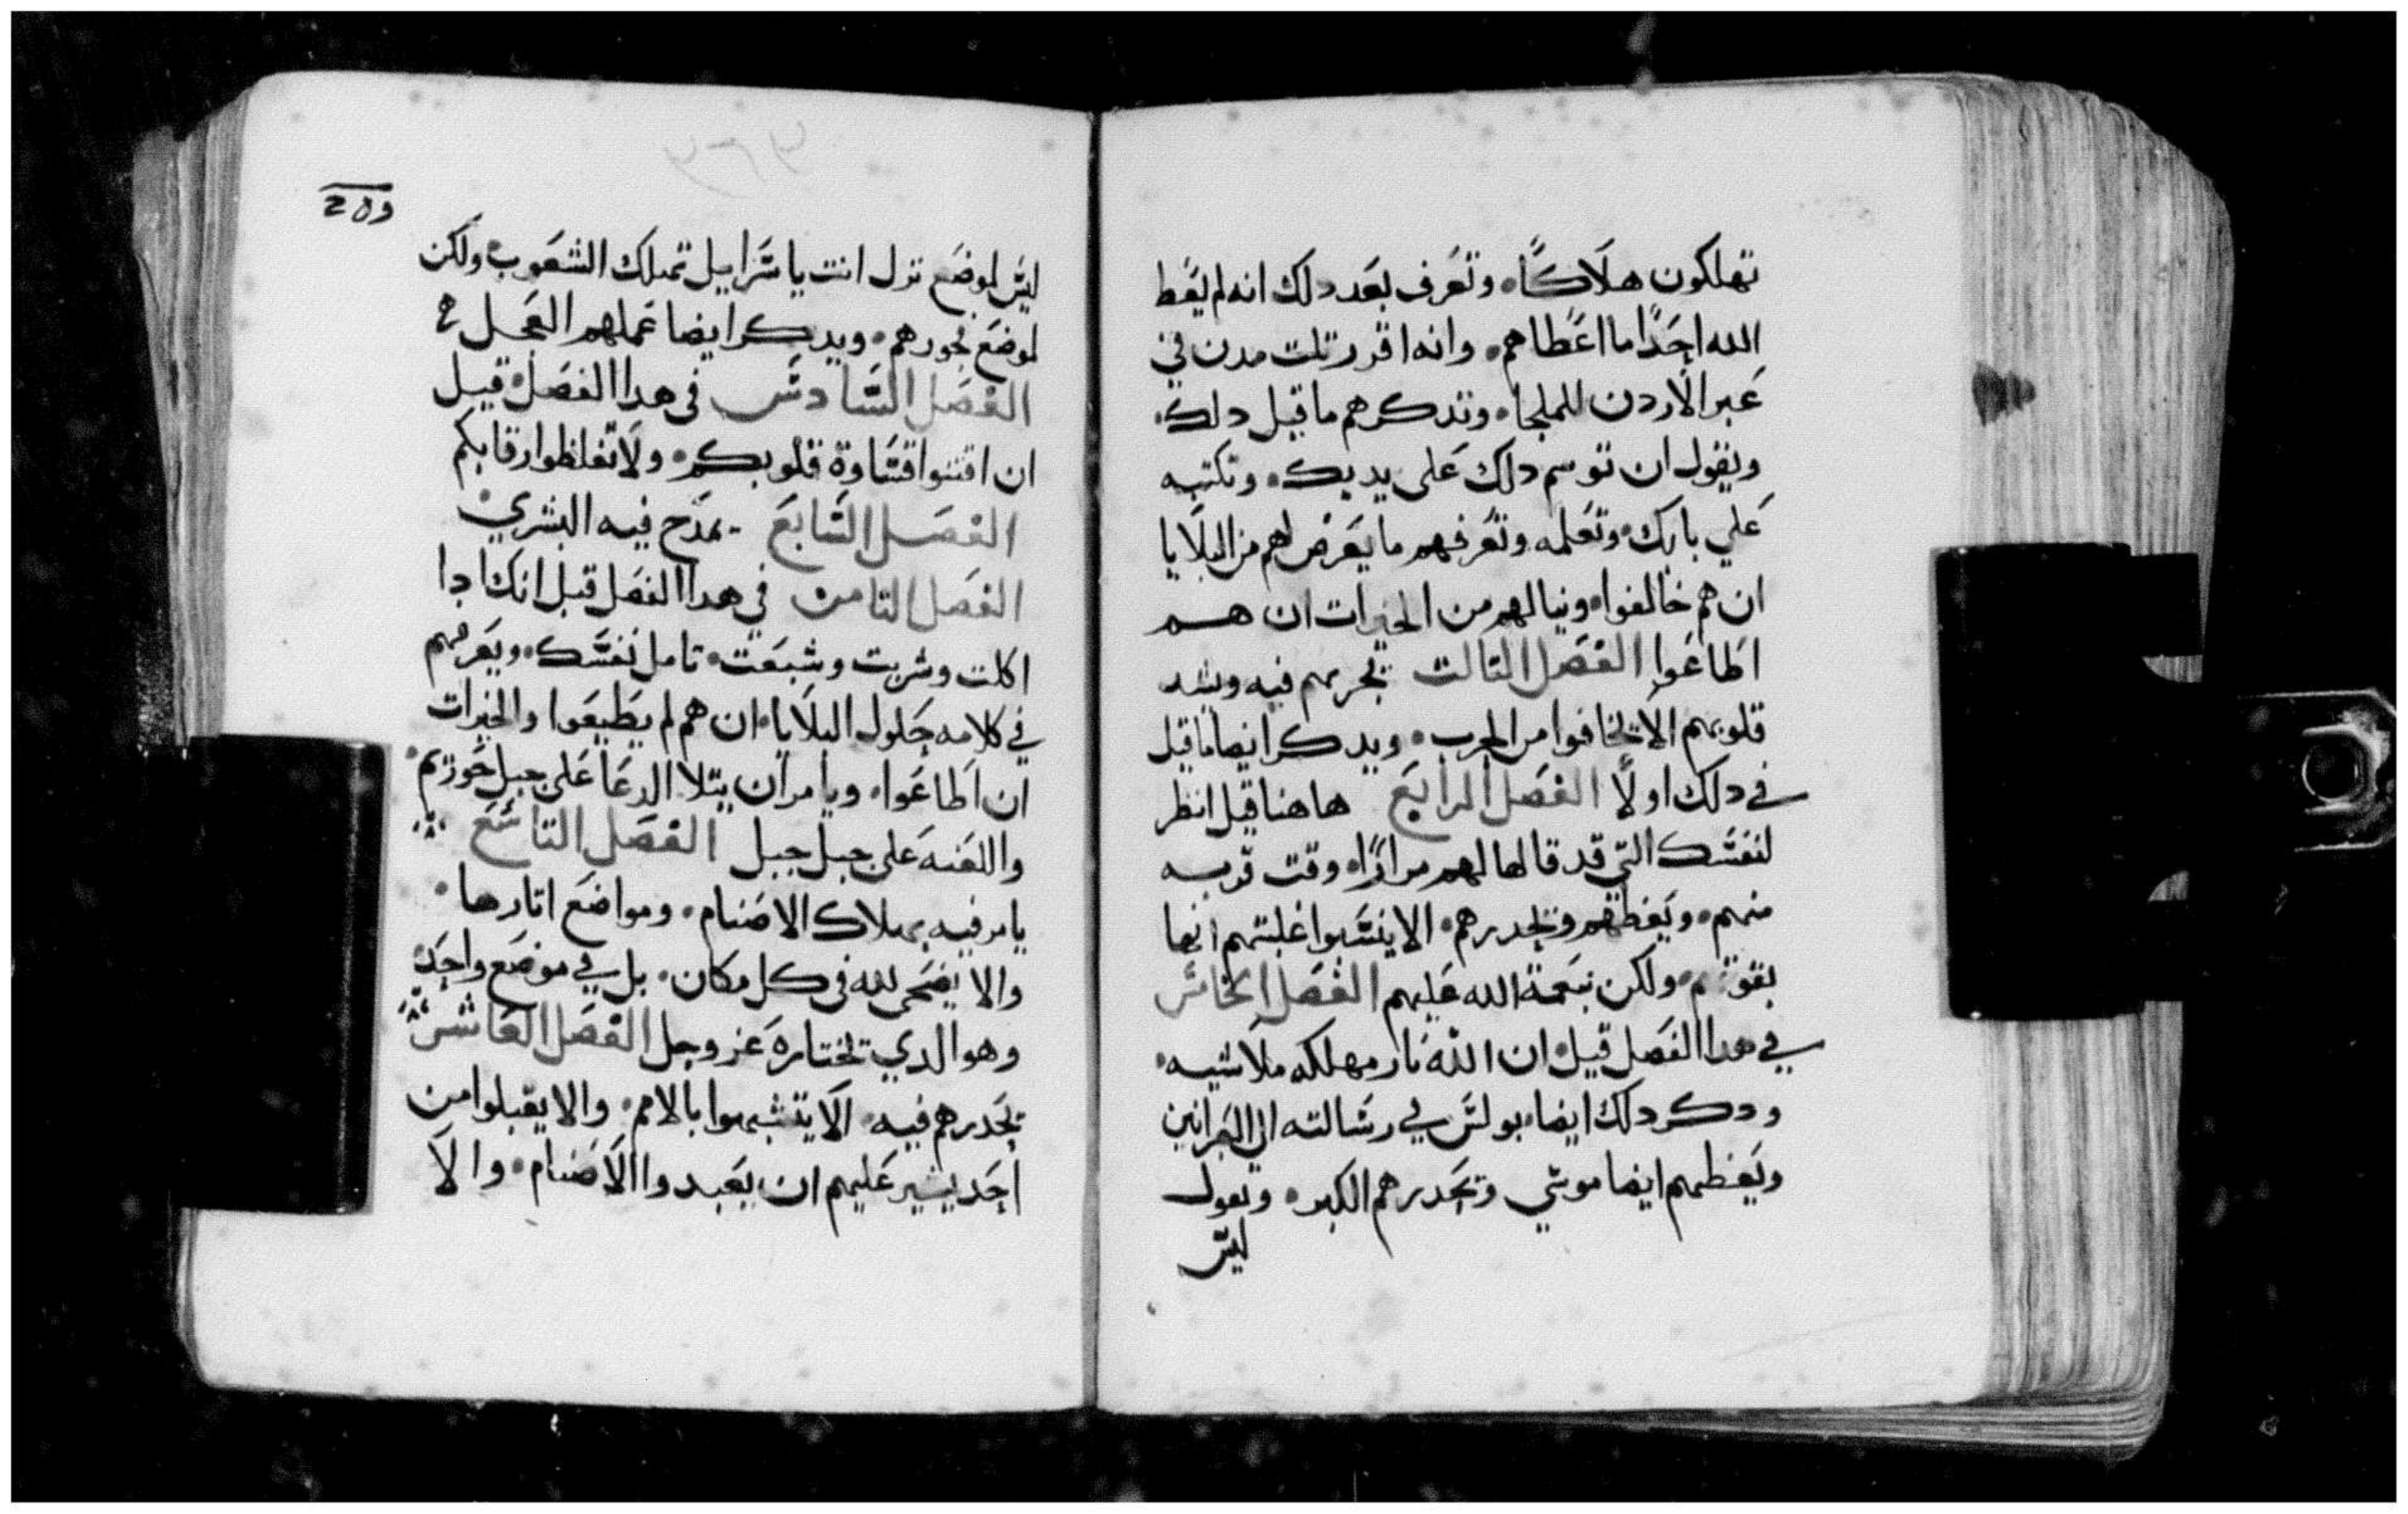 تهلكون هلاكًا، وتعرف بعد دلك انه لم يعط
الله احدًا ما اعطاهم، وانه اقرر تلت مدن في
عبر الاردن للملجا، وتدكرهم ما قيل دلك،
ويقول ان توسم دلك على يديك، وتكتبه
علي بابك، وتعلمه وتعرفهم ما يعرض لهم من البلايا
ان هم خالفوا، ونيالهم من الخيرات ان هم
اطاعوا الفصل التالت يخبرهم فيه ويشد
قلوبهم الا يخافوا من الحرب، ويدكر ايضا ما قيل
في دلك اولًا الفصل الرابع هاهنا قيل انظر
لنفسك التي قد قالها لهم مرارًا، وقت قربه
منهم، ويعظهم ويحدرهم، الا ينسبوا غلبتهم انها
بقوتهم، ولكن نعمة الله عليهم الفصل الخامس
في هدا الفصل قيل، ان الله نار مهلكه ملاشيه،
ودكر دلك ايضا، بولس في رسالته الي العبرانين
ويعظهم ايضا موسي ويحدرهم الكبر، ويقول
ليس
ليس لموضع نزل انت ياسراييل تملك الشعوب، ولكن
لموضع فجورهم، ويدكر ايضا عملهم العجل
الفصل السادس في هدا الفصل قيل
ان اقتنوا قساوة قلوبكم، ولا تغلظوا رقابكم
الفصل السابع يمدح فيه البشري
الفصل التامن في هدا الفصل قيل انك ادا
اكلت وشربت وشبعت، تامل نفسك، ويعرفهم
في كلامه حلول البلايا، ان هم لم يطيعوا والخيرات
ان اطاعوا، ويامر ان يتلا الدعا على جبل حوزيم،
واللعنه على جبل جبل الفصل التاسع
يامر فيه بهلاك الاصنام، ومواضع اتارها،
والا يضحى لله في كل مكان، بل في موضع واحد،
وهو الدي تختاره عز وجل الفصل العاشر
يحدرهم فيه، الا يتشبهوا بالامم، والا يقبلوا من
احد يشير عليهم ان يعبدوا الاصنام، والا